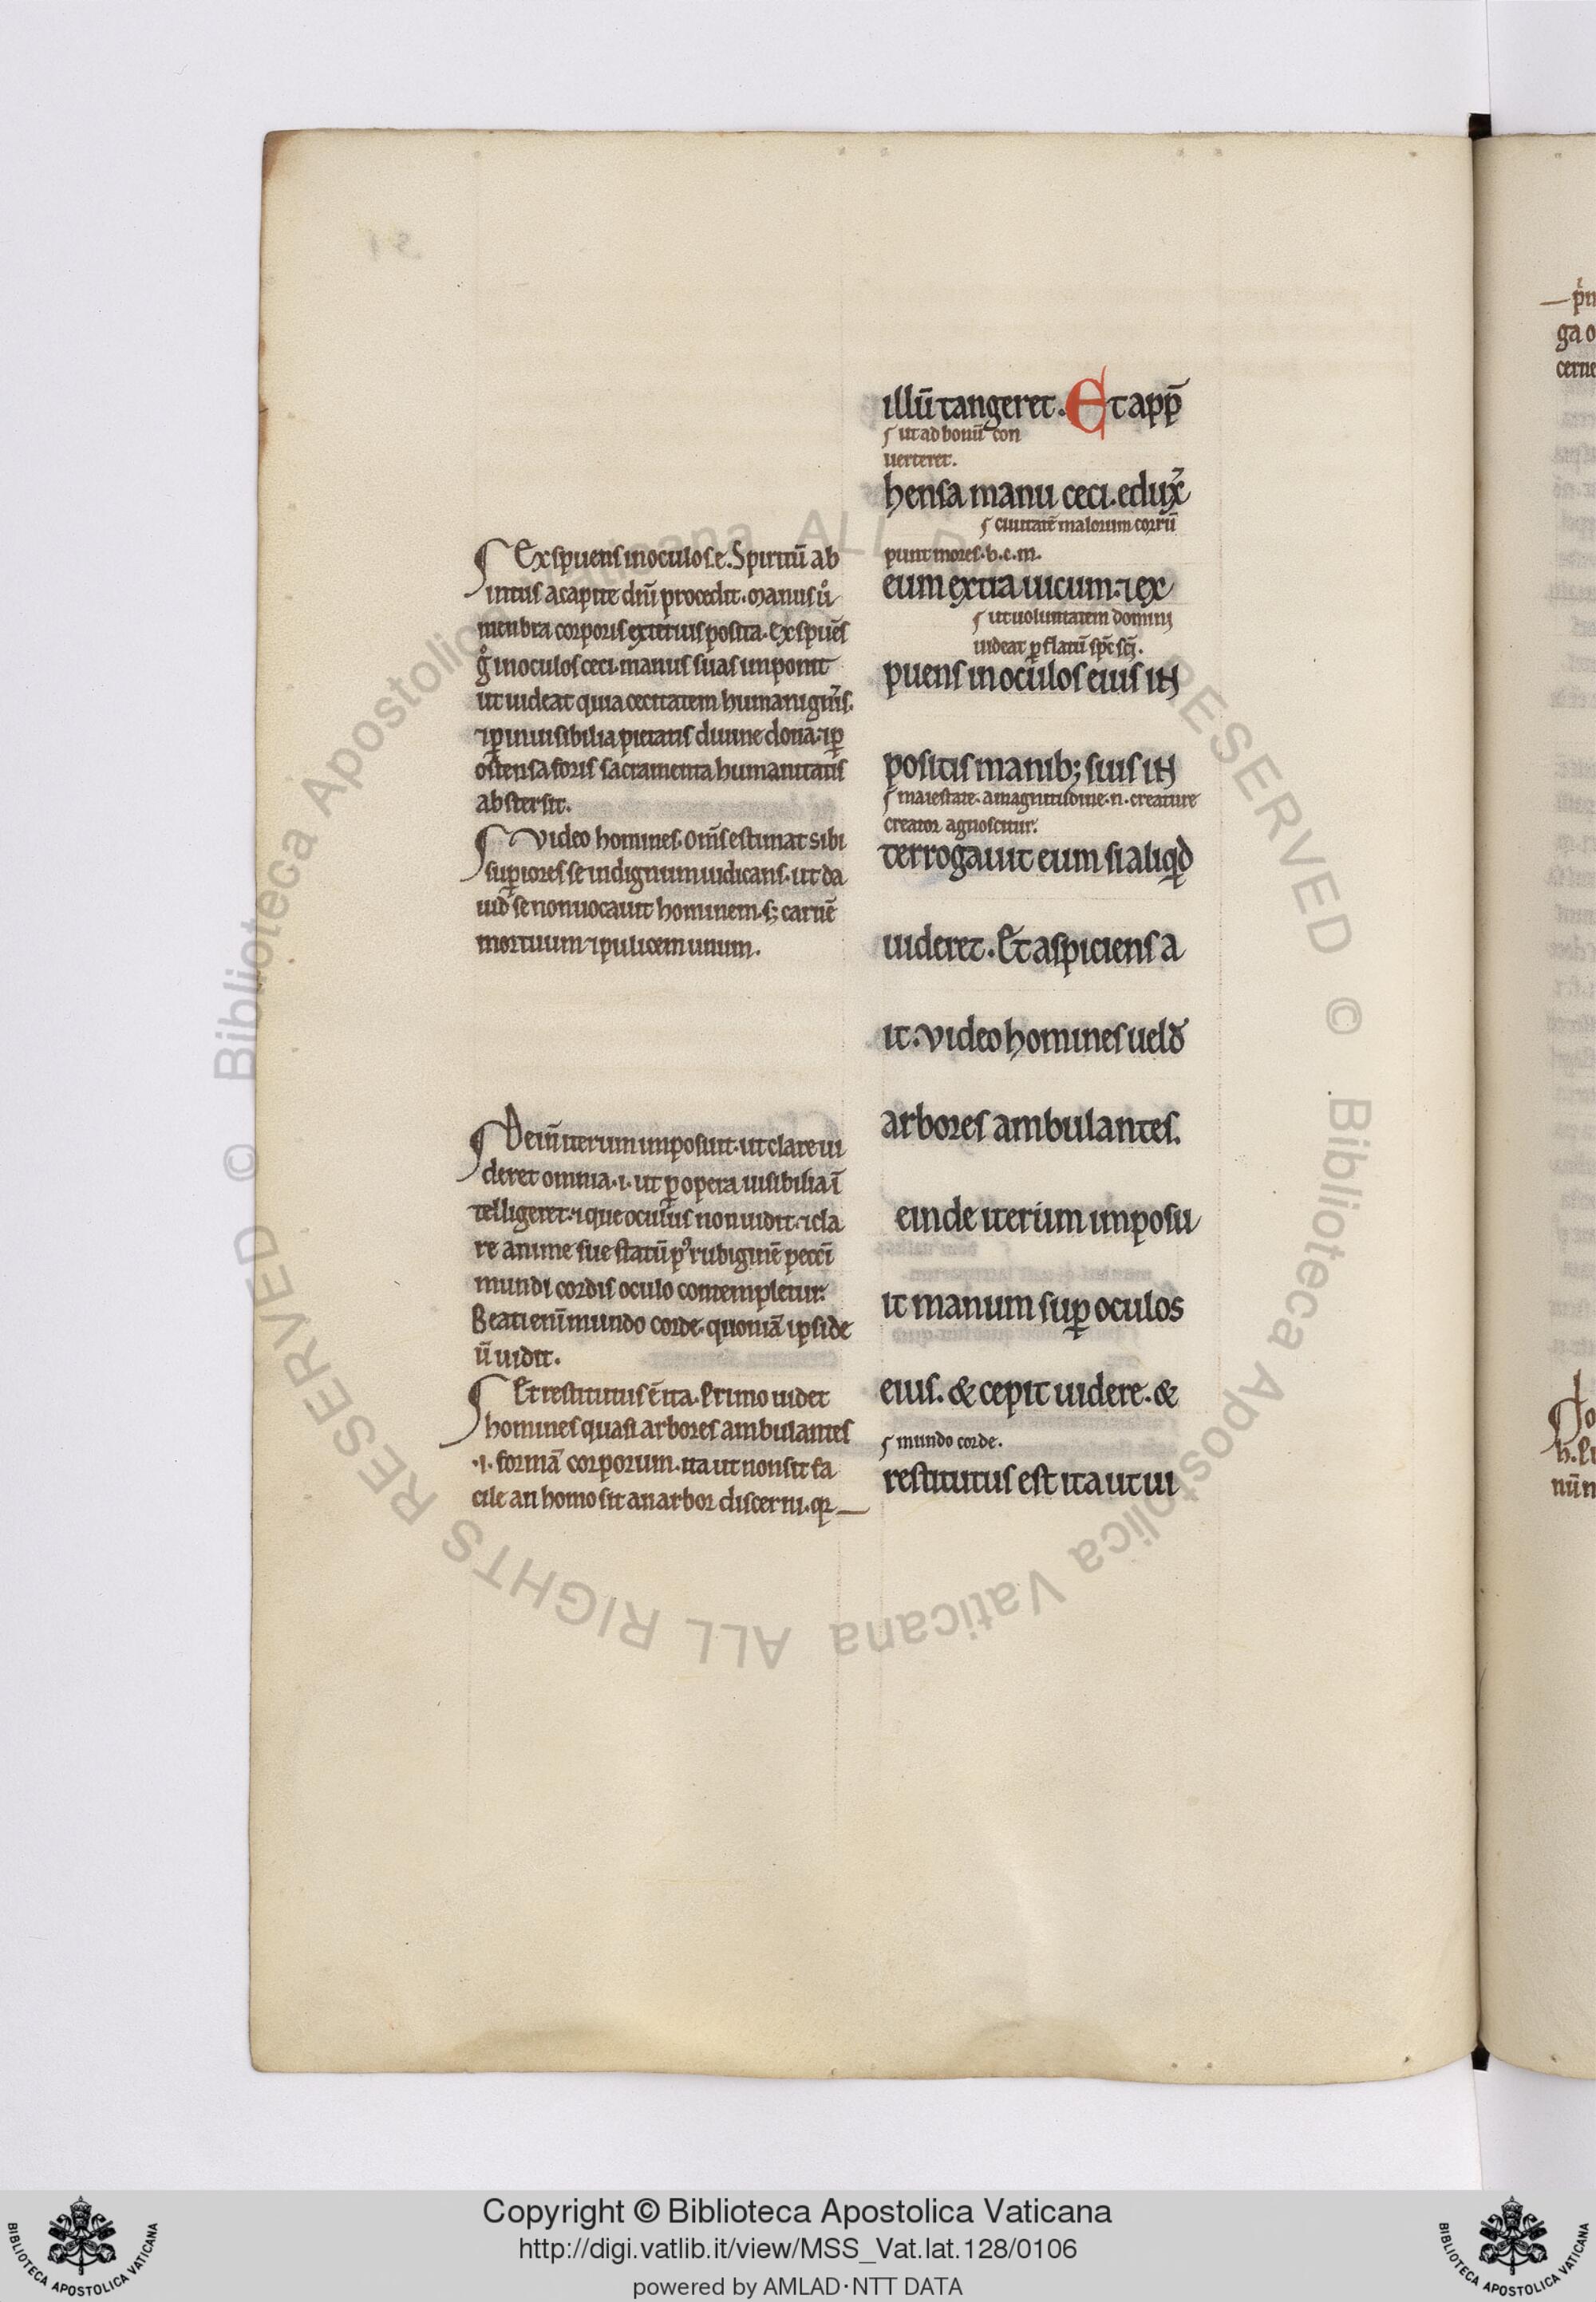 illū tangeret. Et app̄
ſ ut ad bonū con
uerteret.
henſa manu ceci. edux̄
ſ ciuitatē malorum corrū
punt mores. b. c. m.
eum extra uicum. ⁊ ex
ſ ut uoluntatem domini
uideat ꝑ flatū ſp̄c ſc̄i.
puens in oculos eius im
poſitis manib; ſuis in
ſ maieſtate. a magnitudine. n. creature
creator agnoſcitur.
terrogauit eum ſi aliqd̄
uideret. Et aſpiciens a
it. Video homines uelđ
arbores ambulantes.
einde iterum impoſu
it manum ſuꝑ oculos
eius. & cepit uidere. &
ſ mundo corde.
reſtitutus eſt ita ut ui
Exſpuens in oculos. e. Spiritū ab
intus a capite dn̄i procedit. manus ů
menbra corporis exterius poſita. Exſpuēs
g̊ in oculos ceci. manus ſuas imponit
ut uideat quia cecitatem humani gn̄is.
⁊ ꝑ inuiſibilia pietatis diuine dona. ⁊ ꝑ
oſtenſa foris ſacramenta humanitatis
abſterſit.
Video homines. om̄s eſtimat sibi
ſuꝑiores ſe indignum iudicans. ut da
uid ſe non uocauit hominem. ſ; canē
mortuum ⁊ pulicem unum.
Dein̄ iterum impoſuit. ut clare ui
deret omnia. i. ut ꝑ opera uiſibilia ī
telligeret. ⁊ que oculus non uidit. ⁊ cla
re anime ſue ſtatū pꝰ rubiginē pecc̄i
mundi cordis oculo contempletur.
Beati enī mundo corde. quoniā ipſi de
ū uidit.
Et reſtitutus ē ita. Primo uidet
homines quaſi arbores ambulantes
.i. formā corporum. ita ut non ſit fa
cile an homo ſit an arbor diſcerni. qꝛ
Copyright © Biblioteca Apostolica Vaticana
http://digi.vatlib.it/view/MSS_Vat.lat.128/0106
powered by AMLAD·NTT DATA
BIBLIOTECA APOSTOLICA VATICANA
BIBLIOTECA APOSTOLICA VATICANA
© Biblioteca Apostolica Vaticana ALL RIGHTS RESERVED
© Biblioteca Apostolica Vaticana ALL RIGHTS RESERVED